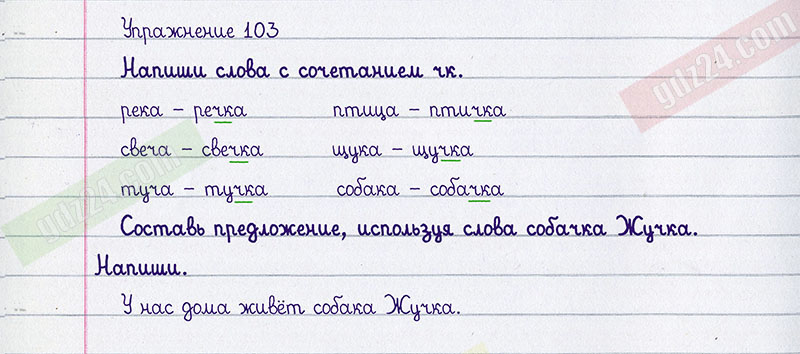 Упражнение 103
Напиши слова с сочетанием чк.
река – речка птица – птичка
свеча – свечка щука – щучка
туча – тучка собака – собачка
Составь предложение, используя слова собачка Жучка.
Напиши.
У нас дома живёт собака Жучка.
gdz24.com
gdz24.com